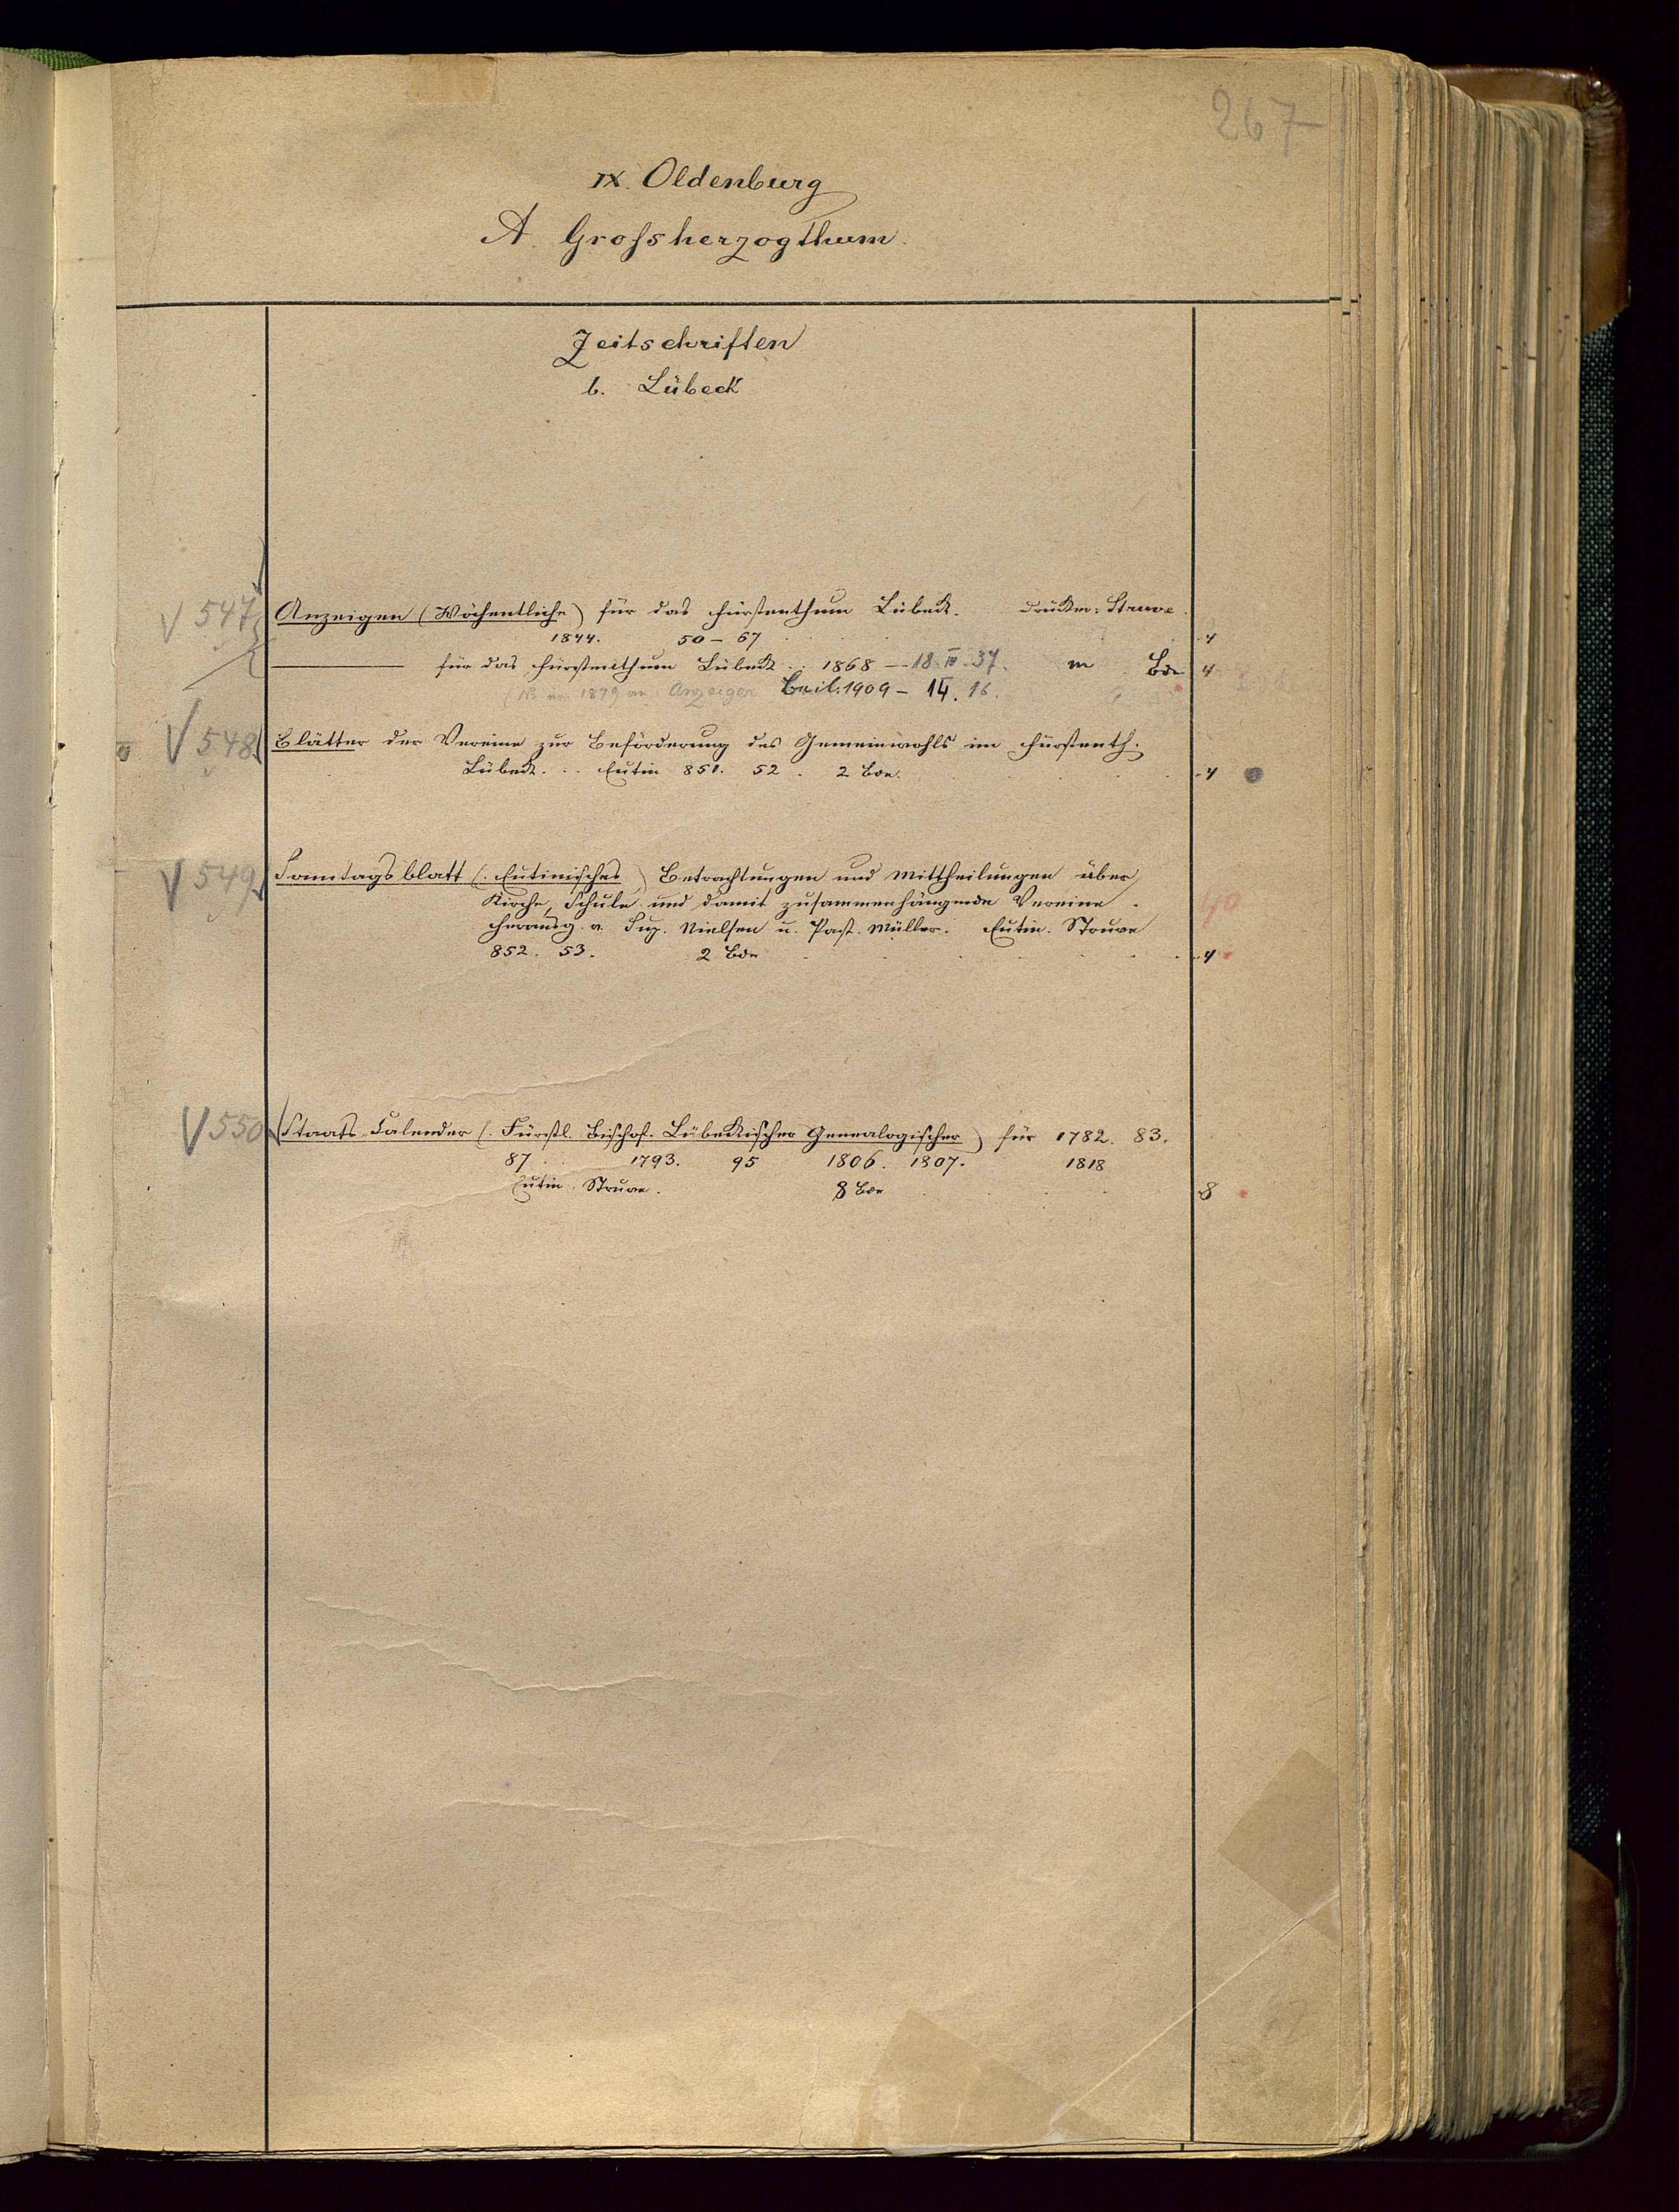 267
IX. Oldenburg
A. Grossherzogthum.
Zeitschriften
b. Lübeck
V 547 Anzeigen (Wöchentliche) für das Fürstenthum Lübeck. Struve.
1844. 50–67 4
— für das Fürstenthum Lübeck. 1868 — 18. IV. 37. Bde 4
1879 an: Anzeiger Beil: 1909 – 14. 16.
V 548 Blätter der Vereine zur Beförderung des Gemeinwohls im Fürstenth.
Lübeck. Eutin 851. 52. 2 Bde. 4
V 549 Sonntagsblatt (Eutinisches) Betrachtungen und Mittheilungen über
Kirche, Schule und damit zusammenhängende Vereine.
Herausg. v. Sup. Nielsen u. Past. Müller. Eutin. Struve 40
852. 53. 2 Bde 4
V 550 Staats-Calender (Fürstl. Bischof. Lübeckischer Genealogischer) für 1782. 83.
87 1793. 95 1806. 1807. 1818
Eutin. Struve. 8 Bde 8